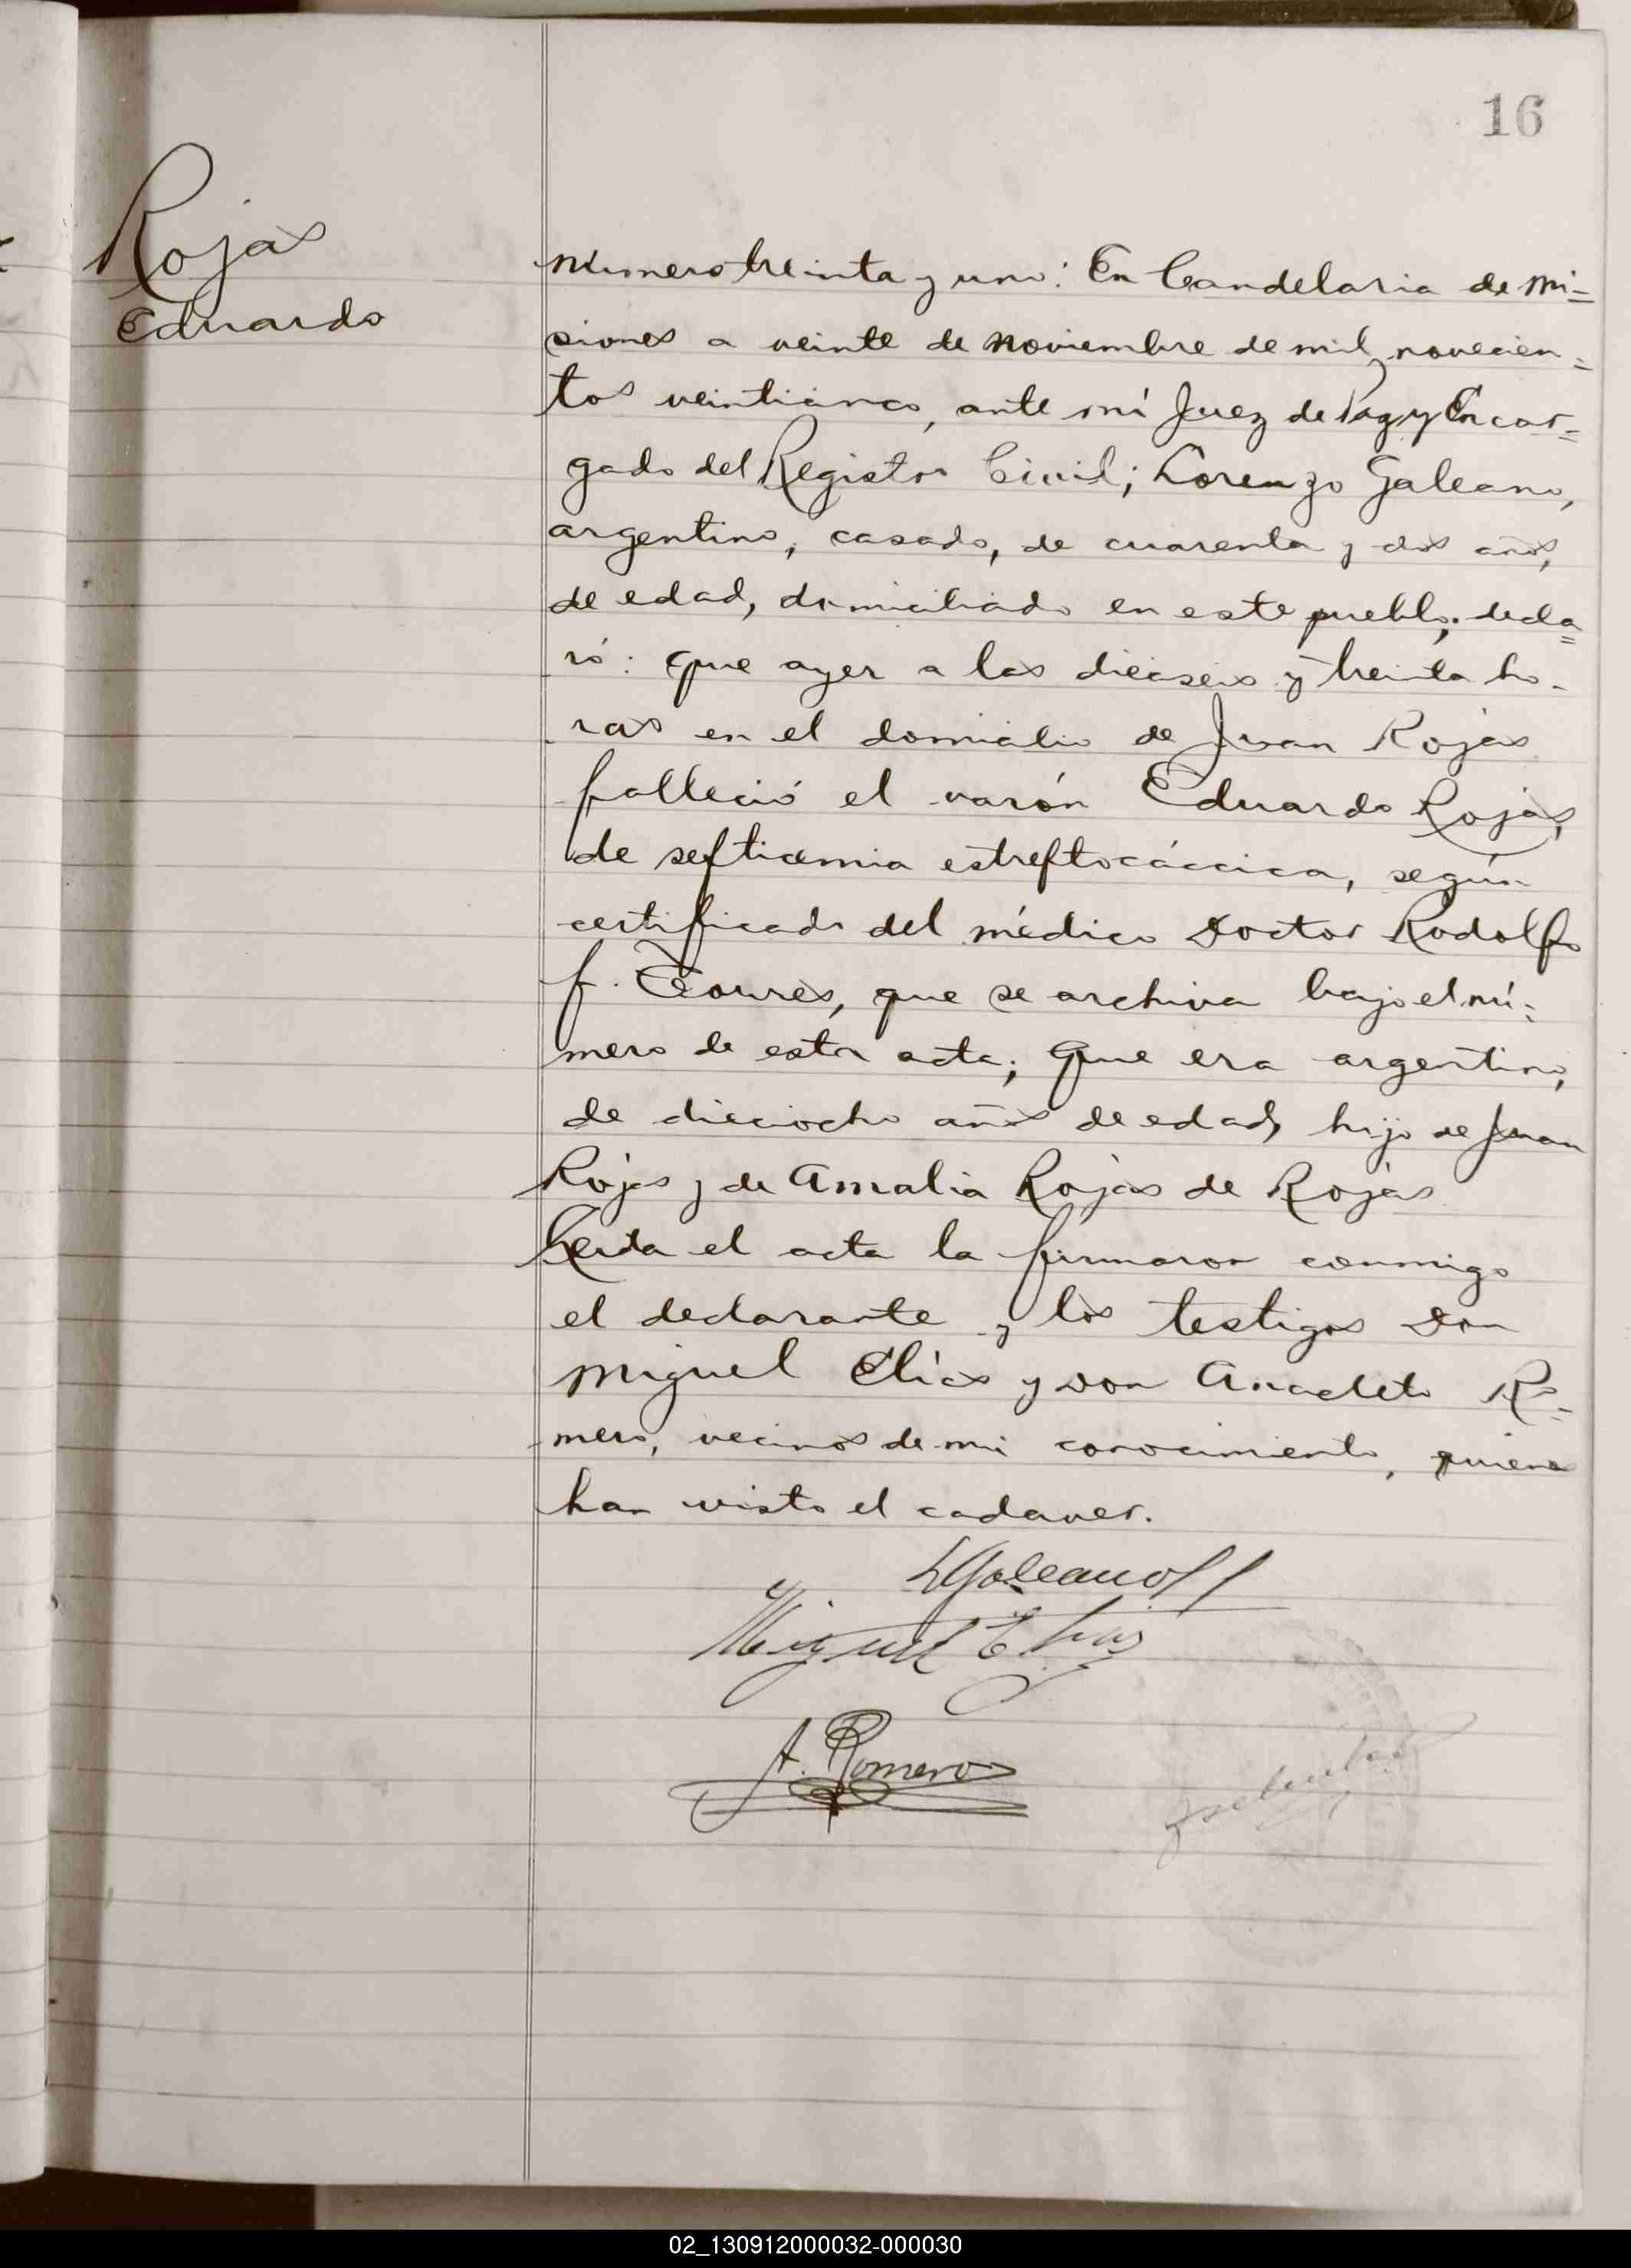 16
Rojas
Eduardo
Número treinta y uno: En Candelaria de Mi=
siones a veinte de Noviembre de mil novecien=
tos veinticinco, ante mí Juez de Paz y Encar=
gado del Registro Civil; Lorenzo Galeano,
argentino, casado, de cuarenta y dos años,
de edad, domiciliado en este pueblo; decla=
ró: que ayer a las dieciseis y treinta ho-
ras en el domicilio de Juan Rojas
falleció el varón Eduardo Rojas,
de septicemia estreptocáccica, según
certificado del médico Doctor Rodolfo
F. Torres, que se archiva bajo el nú=
mero de esta acta; que era argentino,
de dieciocho años de edad, hijo de Juan
Rojas y de Amalia Rojas de Rojas
Leida el acta la firmaron conmigo
el declarante y los testigos Don
Miguel Elias y Don Anacleto Ro=
mero, vecinos de mi conocimiento, quienes
han visto el cadaver.
LGaleano
Miguel Elias
A. Romero
02_130912000032-000030